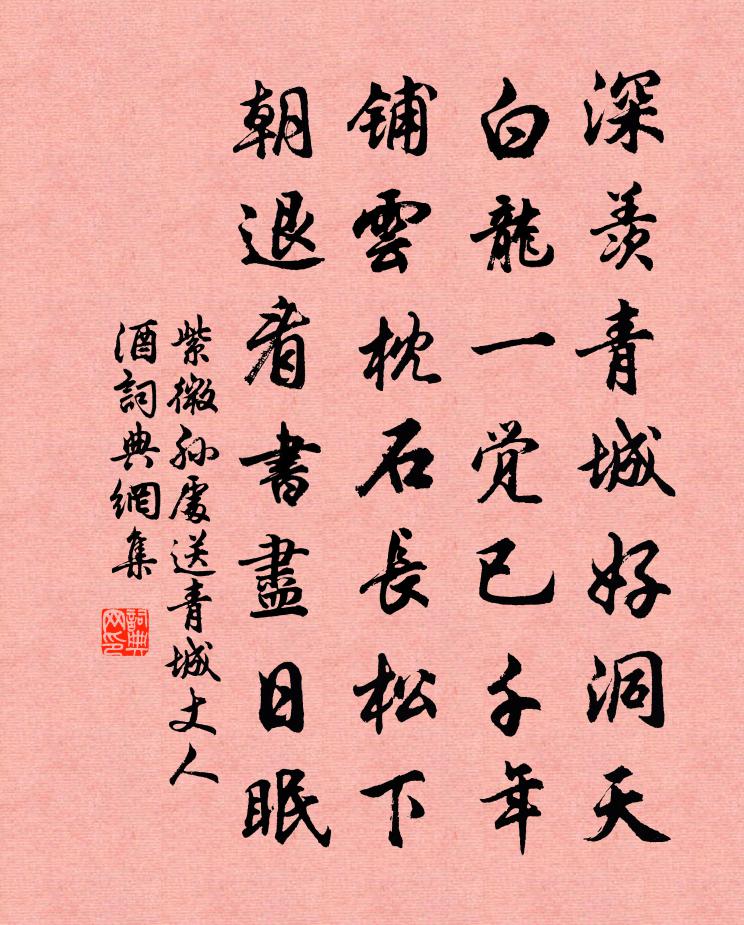 深羨青城好洞天
白龍一觉已千年
鋪雲枕石長松下
朝退看書盡日眠
紫微孙處送青城丈人
酒詞典網集
詞典网印